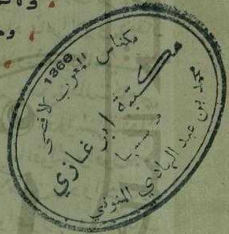 مكناس المغرب الأقصى
1368
مكتبة ابن غازي
محمد بن عبد الهادي المنوني